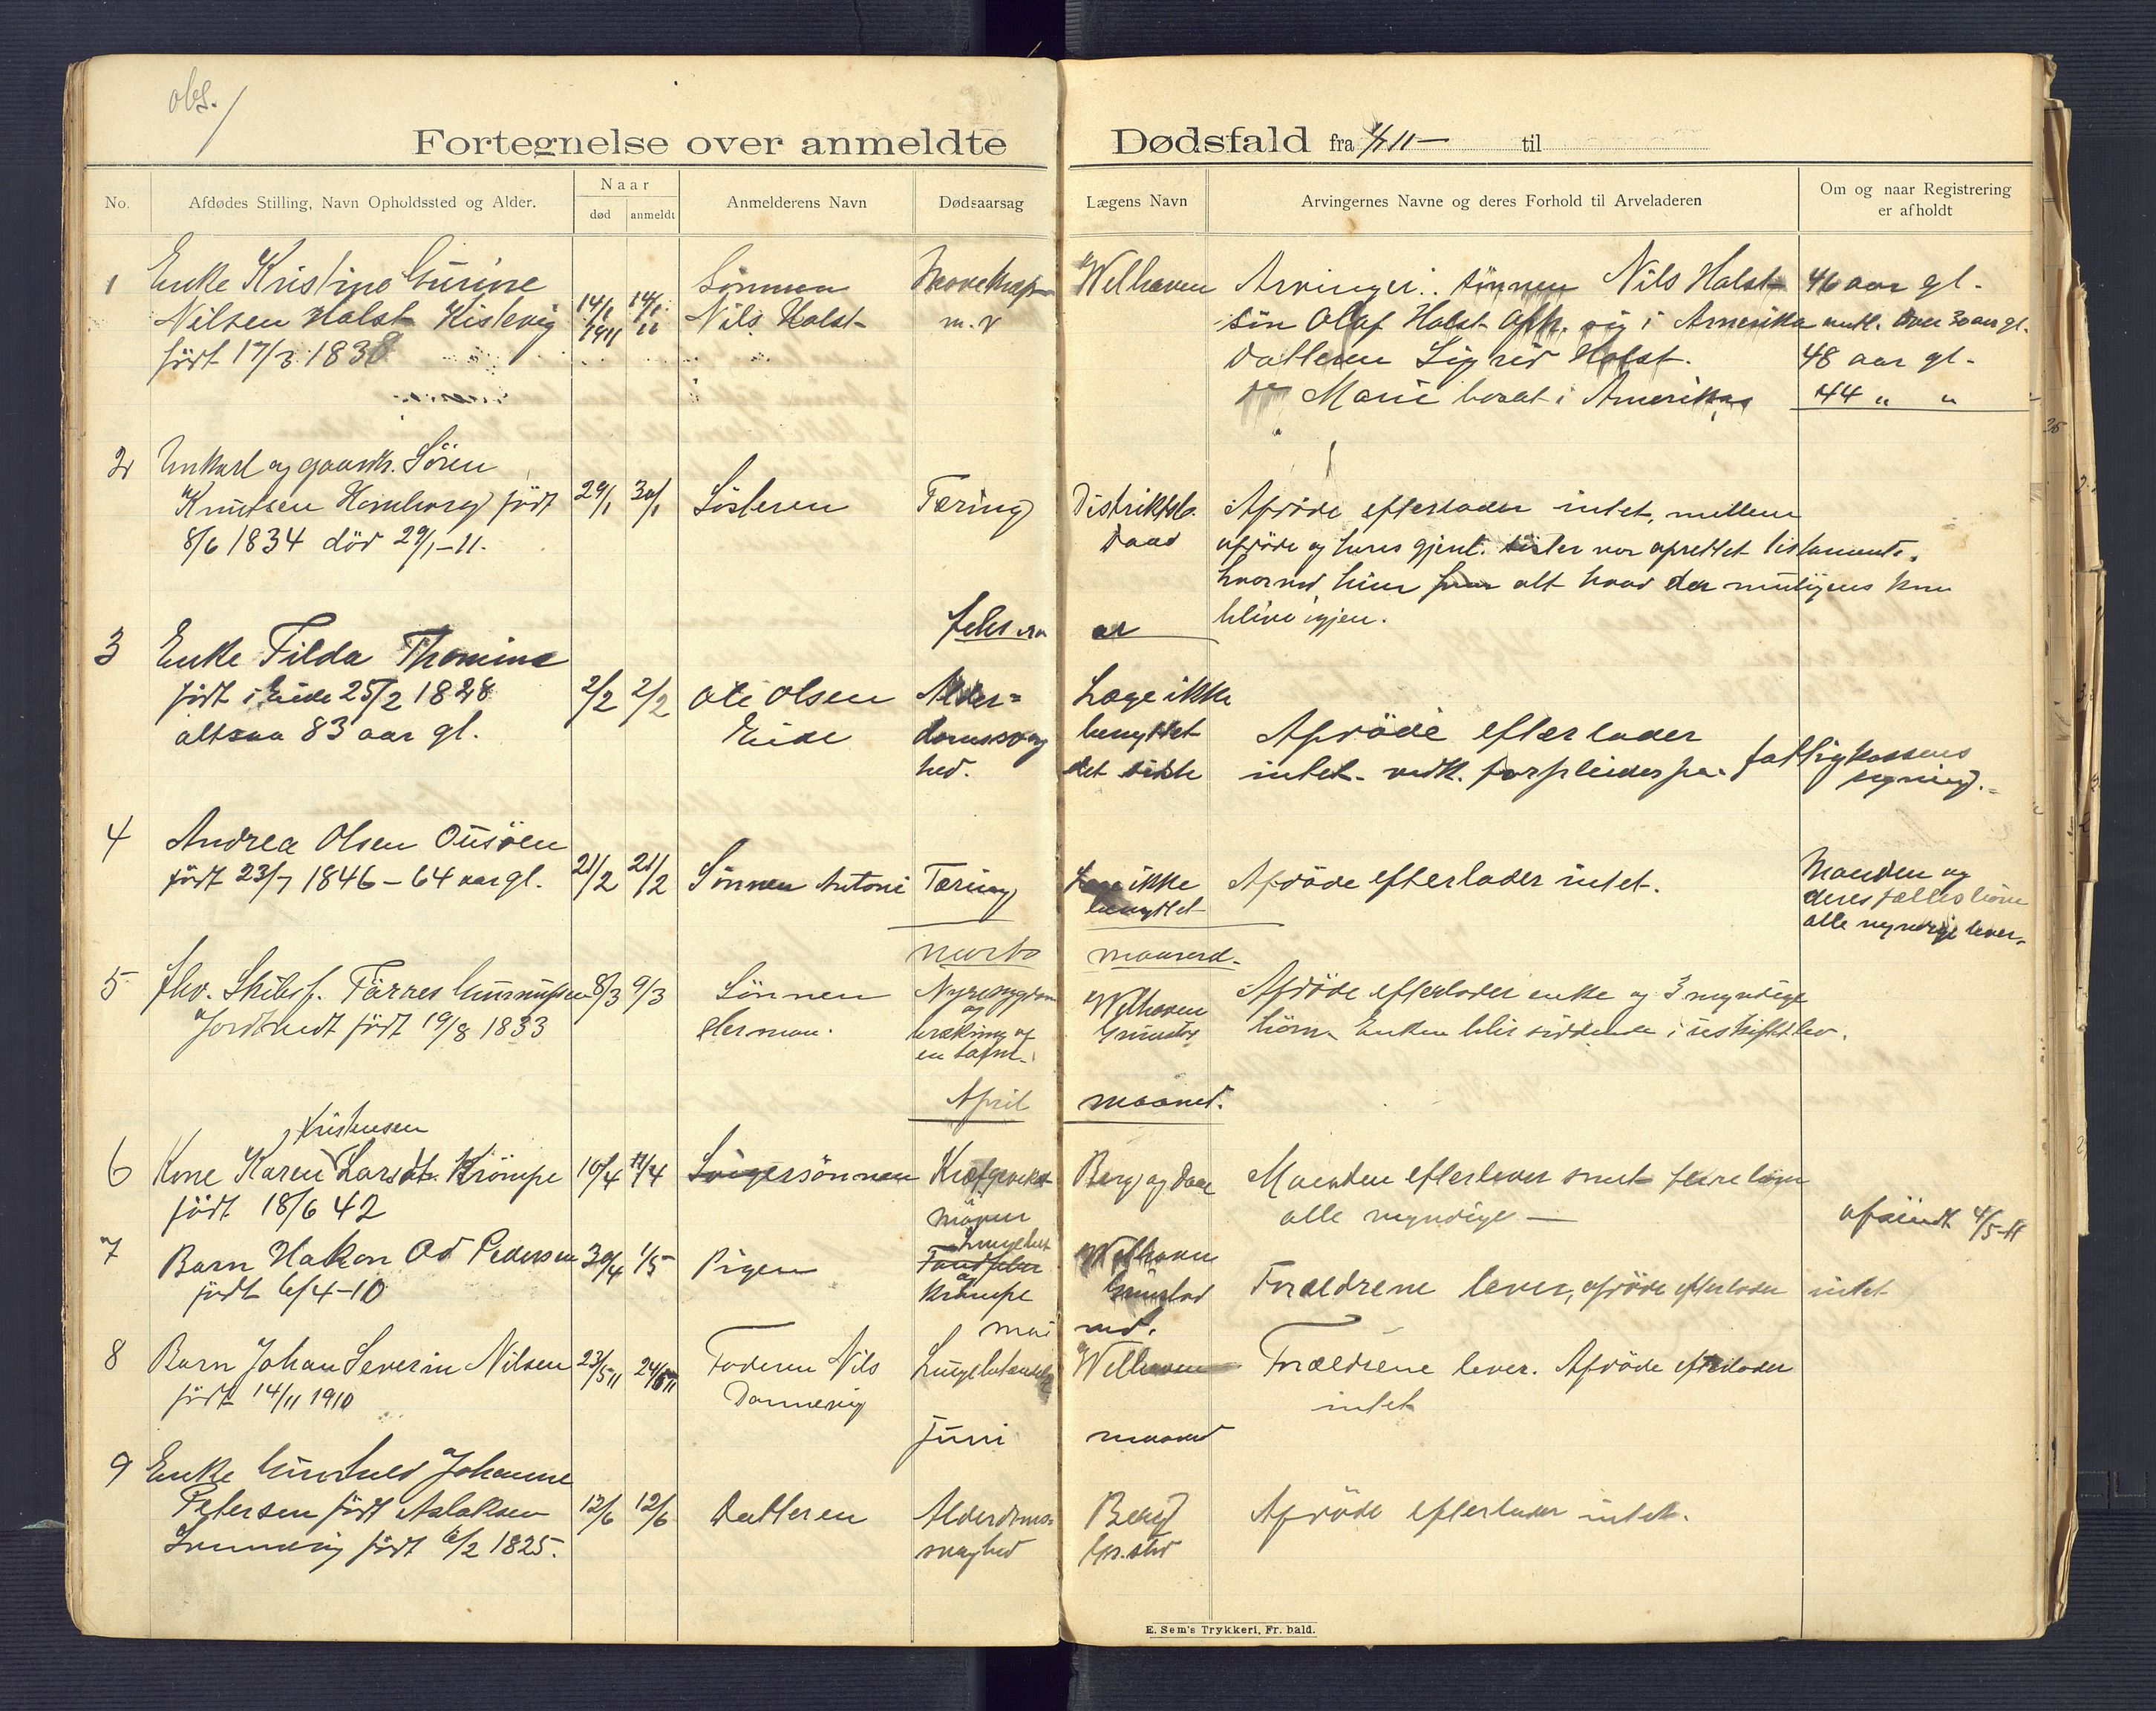 obs.
Fortegnelse over anmeldte Dødsfald fra 1/1 11 — til
No.
Afdødes Stilling, Navn Opholdssted og Alder.
Naar
død
anmeldt
Anmelderens Navn
Dødsaarsag
Lægens Navn
Arvingernes Navne og deres Forhold til Arveladeren
Om og naar Registrering
er afholdt
1 Enke Kristine Gurine
Nilsen Holst Kistevig
født 17/3 1838
14/1 1911
14/1 11
Sønnen
Nils Holst
m. v
Welhaven
Arvinger: sønnen Nils Holst 46 aar gl.
søn Olaf Holst oph. sig i Amerika over 30 aar gl.
Datteren Sigrid Holst. 48 aar gl.
Marie bosat i Amerika 44 " "
2 Unkarl og gaardb. Søren
Knutsen Homborg født
8/6 1834 død 29/1-11.
29/1
30/1
Søsteren
Tæring
Distriktsl.
Daae
Afdøde efterlader intet, mellem
afdøde og hans gjenl. søster var oprettet testamente.
hvorved hun faar alt hvad der muligens kan
blive igjen.
Febr ua ar
3 Enke Tilda Thomine
født i Eide 25/2 1828
altsaa 83 aar gl.
2/2
2/2
Ole Olsen
Eide
Alder=
domssvag
hed.
Læge ikke
benyttet
det sidste
Afdøde efterlader
intet. forpleides paa fattigkassens
regning.
4 Andrea Olsen Ousøen
født 23/7 1846 - 64 aar gl.
21/2
21/2
Sønnen Antoni
Tæring
Læge ikke
benyttet
Afdøde efterlader intet.
Manden og
deres fælles børn
alle myndige lever.
marts maaned.
5 fhv. Skibsf. Tarres Gunnufsen
Jordtvedt født 19/8 1833
8/3
9/3
Sønnen
Herman.
Nyresygdom
og
brækning af
en
Welhaven
Grimstad
Afdøde efterlader enke og 3 myndige
børn Enken blir siddende i uskiftet bo.
April maaned.
Kristensen
6 Kone Karen Larsdt. Krømpe
født 18/6 42
10/4
11/4
Svigersønnen
Kræftsvulst
Berg og Daae
Manden efterlever samt flere børn
alle myndige —
afsendt 4/5-11
7 Barn Hakon Od Pedersen
født 6/4-10
30/4
1/5
Pigen
Krampe
Welhaven
Grimstad
Forældrene lever, afdøde efterlader intet
mai md.
8 Barn Johan Severin Nilsen
født 14/11 1910
23/5 11
24/5 11
Faderen Nils
Dannevig
Lungebetændelse
Welhaven
Forældrene lever. Afdøde efterlader
intet
Juni maaned
9 Enke Gunhild Johanne
Petersen født Aslaksen
født 6/2 1825.
12/6
12/6
Datteren
Alderdoms-
svaghed
Berg
Gr.stad
Afdøde efterlader intet.
E. Sem's Trykkeri, Fr. hald.